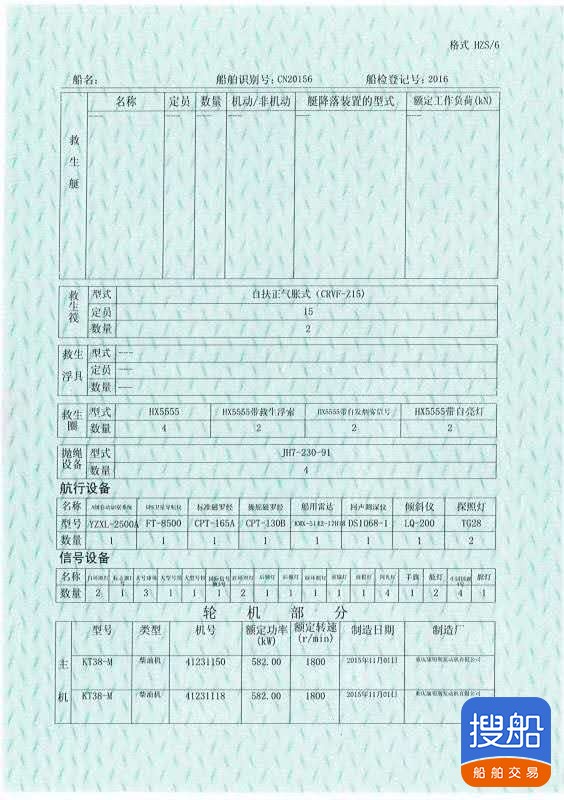 格式 HZS/6
船名: 船舶识别号: CN20156 船检登记号: 2016
救生艇 名称 定员 数量 机动/非机动 艇降落装置的型式 额定工作负荷(kN)
--- --- --- --- --- ---
救生筏 型式 自扶正气胀式 (CRVF-Z15)
定员 15
数量 2
救生浮具 型式 ---
定员 ---
数量 ---
救生圈 型式 HX5555 HX5555带救生浮索 HX5555带自发烟雾信号 HX5555带自亮灯
数量 4 2 2 2
抛绳设备 型式 JH7-230-91
数量 4
航行设备
名称 标准磁罗经 操舵磁罗经 船用雷达 回声测深仪 倾斜仪 探照灯
型号 YZXL-2500A FT-8500 CPT-165A CPT-130B DS1068-1 LQ-200 TG28
数量 1 1 1 1 1 1 1 1
信号设备
名称 手旗 舷灯
数量 2 1 3 1 1 1 2 1 1 1 1 1 4 1 2 4 1
轮机部分
型号 类型 机号 额定功率(kW) 额定转速(r/min) 制造日期 制造厂
主机 KT38-M 柴油机 41231150 582.00 1800 2015年11月01日 重庆康明斯发动机有限公司
KT38-M 柴油机 41231118 582.00 1800 2015年11月01日 重庆康明斯发动机有限公司
搜船
船舶交易